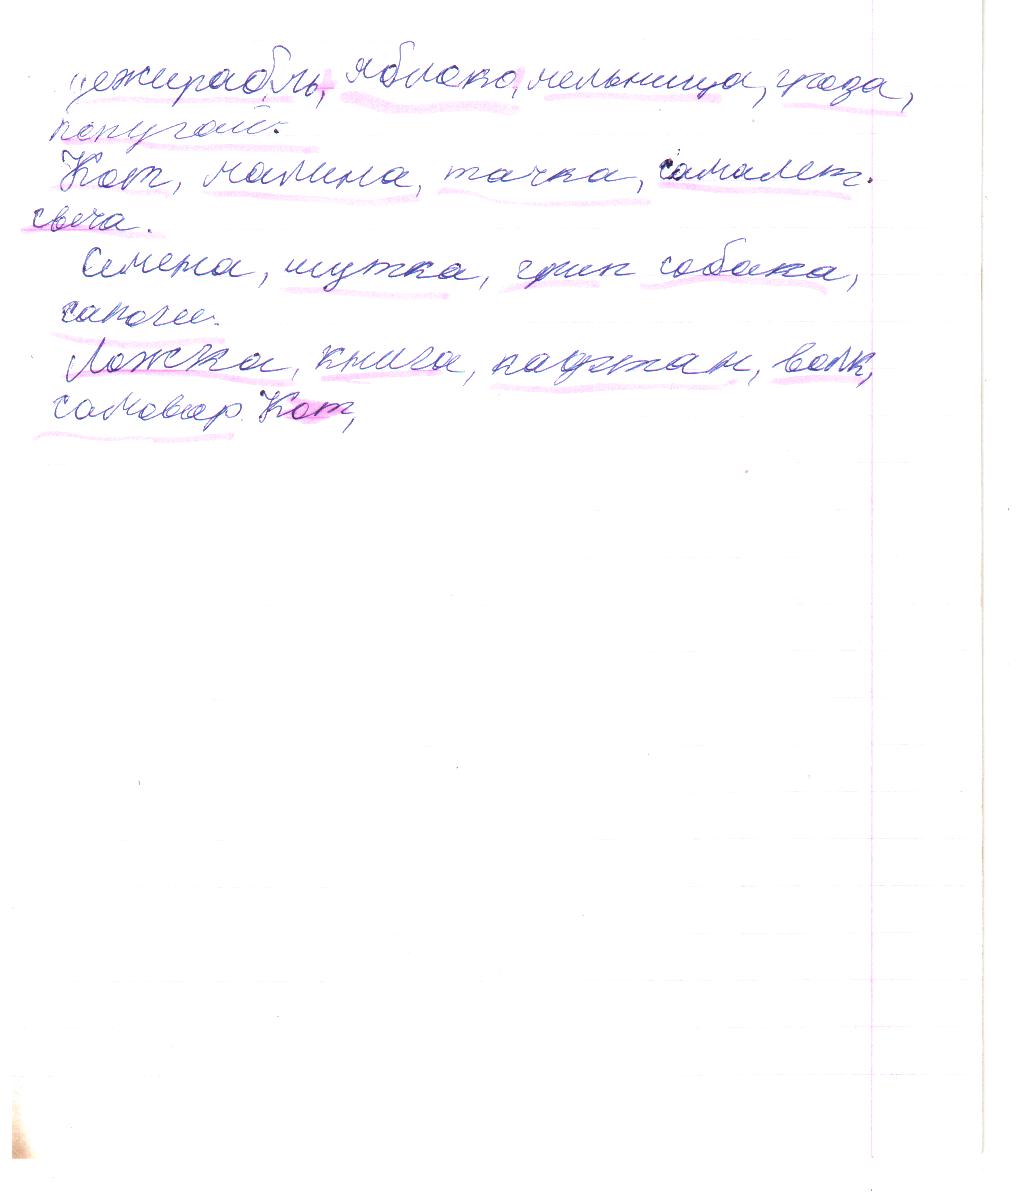 дежирабль, яблоко, мельница, гроза,
попугай.
Кот, малина, тачка, самалет.
свеча.
Семена, шутка, грип собака,
сапоги.
Ложка, книга, кафтан, волк,
самовар. Кот,